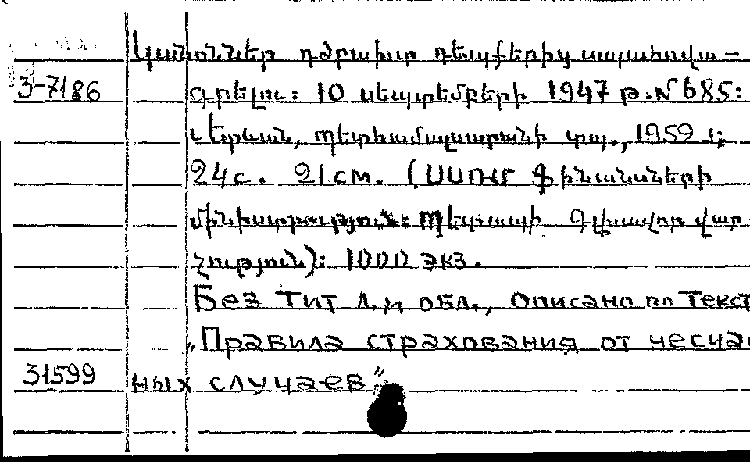 Կանոններ դժբախտ դեպքերից ապահովա-
3-7186 գրելու: 10 սեպտեմբերի 1947 թ. № 685:
Երևան, Պետհամալսարանի տպ., 1959 թ.
24 с. 21 см. (ՍՍՌՄ Ֆինանսների
մինիստրություն: Պետապի Գլխավոր վար
չություն): 1000 экз.
Без тит л. и обл., описано по текст
„Правила страхования от несча
31599 ных случаев"